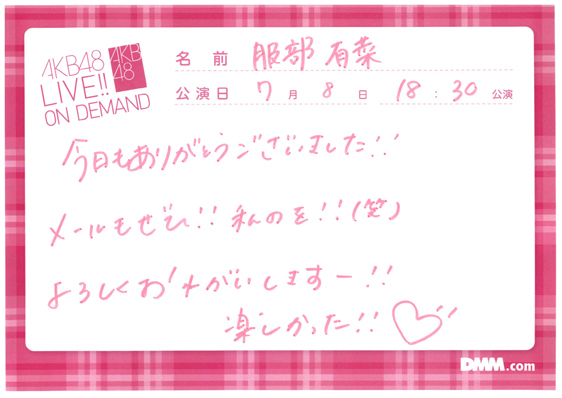 AKB48
LIVE!!
ON DEMAND
AKB
48
名前 服部有菜
公演日 7月8日 18:30 公演
今日もありがとうございました!!
メールもぜひ!! 私のを!!(笑)
よろしくおねがいしますー!!
楽しかった!!♡
DMM.com